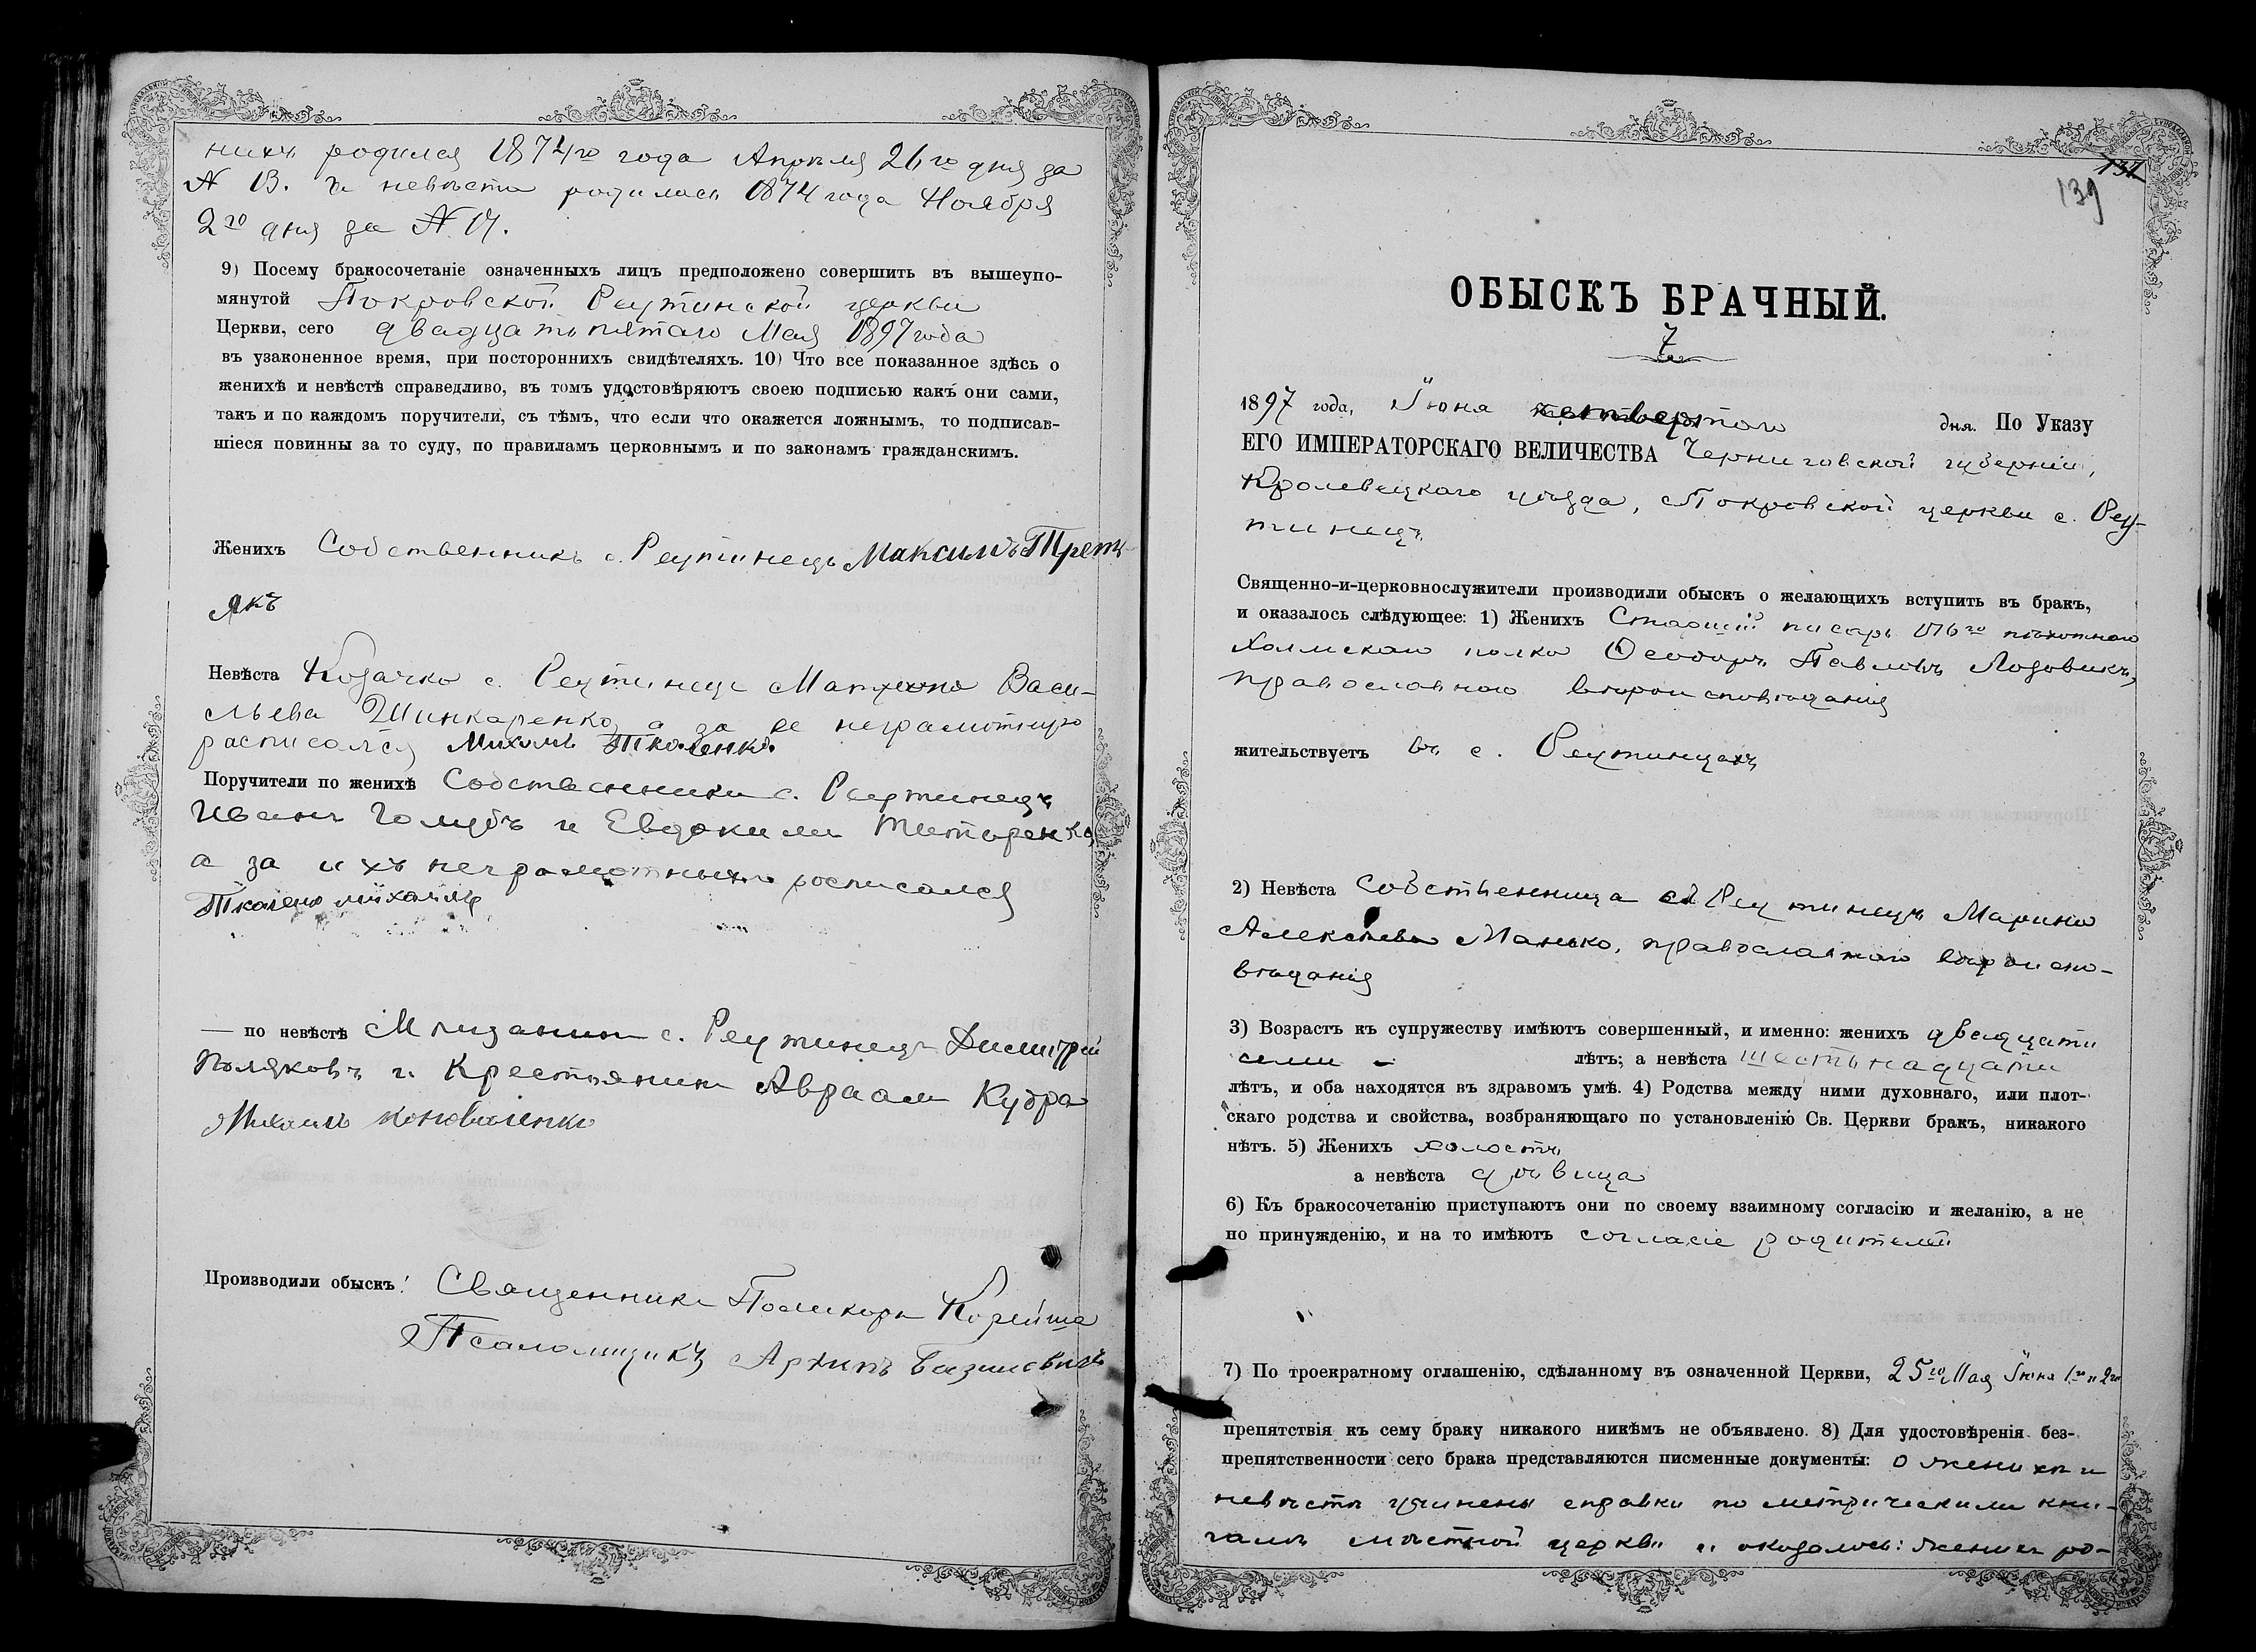 нихъ родился 1874го года Апрѣля 26го дня за
№ 13. а невѣста родилась 1874 года Ноября
2го дня за №
9) Посему бракосочетаніе означенныхъ лицъ предположено совершить въ вышеупо-
мянутой Покровской Реутинской церкви
Церкви, сего двадцать пятаго Мая 1897 года
въ узаконенное время, при постороннихъ свидѣтеляхъ. 10) Что все показанное здѣсь о
женихѣ и невѣстѣ справедливо, въ томъ удостовѣряютъ своею подписью какъ они сами,
такъ и по каждомъ поручители, съ тѣмъ, что если что окажется ложнымъ, то подписав-
шіеся повинны за то суду, по правиламъ церковнымъ и по законамъ гражданскимъ.
Женихъ Собственникъ с. Реутинецъ Максимъ Трет-
якъ
Невѣста Козачка с. Реутинецъ Васи-
льева Шинкаренко, а за ее неграмотную
расписался Михаилъ
Поручители по женихѣ Собственники с. Реутинецъ
Иванъ Голубъ и Евдокимъ Титаренко,
а за ихъ неграмотныхъ росписался
Михаилъ
— по невѣстѣ Мѣщанинъ с. Реутинецъ Димитрій
Поляковъ и Крестьянинъ Авраам Кудра
Михаилъ Коноваленко
Производили обыскъ: Священникъ Поликарпъ Корейша
Псаломщикъ Архипъ Базилевичъ
137
139
ОБЫСКЪ БРАЧНЫЙ.
7
1897 года, Іюня четвертого дня. По Указу
ЕГО ИМПЕРАТОРСКАГО ВЕЛИЧЕСТВА Черниговской губерніи,
Кролевецкаго уѣзда, Покровской церкви с. Реу-
тинецъ
Священно-и-церковнослужители производили обыскъ о желающихъ вступить въ бракъ,
и оказалось слѣдующее: 1) Женихъ Старшій писарь 176го пѣхотнаго
Холмскаго полка Ѳеодоръ Павловъ Лозовикъ,
православнаго вѣроисповѣданія
жительствуетъ въ с. Реутинцахъ
2) Невѣста Собственница с. Реутинецъ Марина
Алексѣева Манько, православнаго вѣроиспо-
вѣданія
3) Возрастъ къ супружеству имѣютъ совершенный, и именно: женихъ двадцати
семи лѣтъ; а невѣста шестьнадцати
лѣтъ, и оба находятся въ здравомъ умѣ. 4) Родства между ними духовнаго, или плот-
скаго родства и свойства, возбраняющаго по установленію Св. Церкви бракъ, никакого
нѣтъ. 5) Женихъ холостъ
а невѣста дѣвица
6) Къ бракосочетанію приступаютъ они по своему взаимному согласію и желанію, а не
по принужденію, и на то имѣютъ согласіе родителей
7) По троекратному оглашенію, сдѣланному въ означенной Церкви, 25го Мая Іюня 1го и 2го
препятствія къ сему браку никакого никѣмъ не объявлено. 8) Для удостовѣренія без-
препятственности сего брака представляются писменные документы: о женихѣ и
невѣстѣ учинены справки по метрическимъ кни-
гамъ мѣстной церкви и оказалось: женихъ ро-